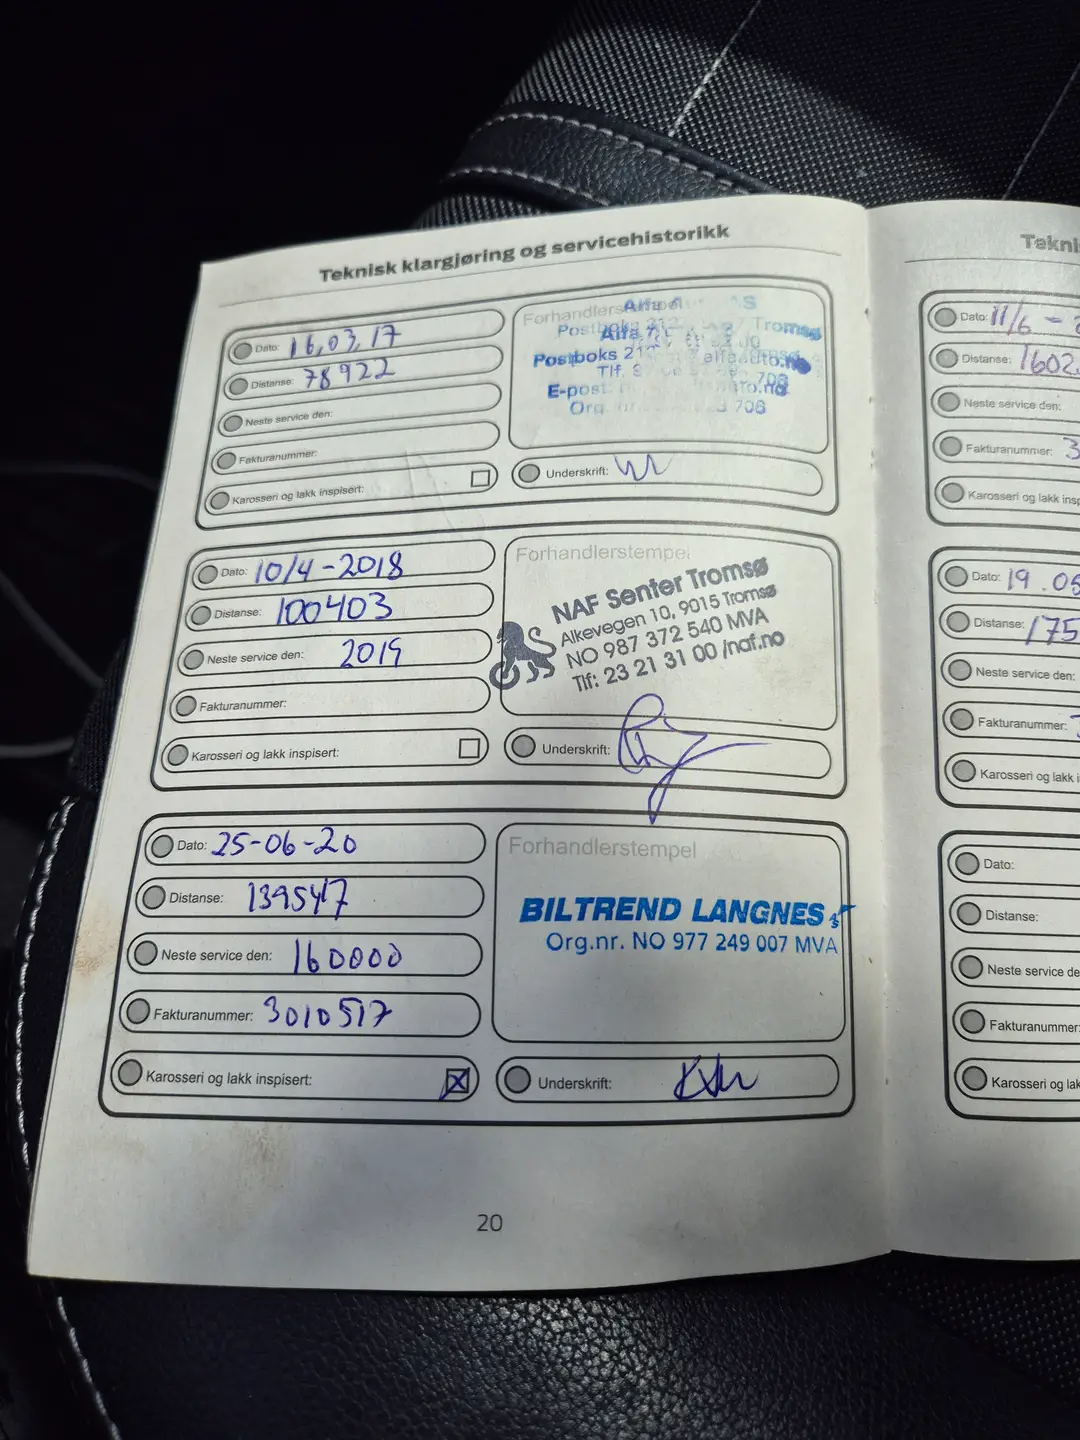 Teknisk klargjøring og servicehistorikk
Dato: 16,03,17
Distanse: 78922
Neste service den:
Fakturanummer:
Karosseri og lakk inspisert:
Postboks
Tromsø
Postboks 21
Tlf.
E-post:
706
Underskrift:
Dato: 10/4-2018
Distanse: 100403
Neste service den: 2019
Fakturanummer:
Karosseri og lakk inspisert:
Forhandlerstempel
NAF Senter Tromsø
Alkevegen 10, 9015 Tromsø
NO 987 372 540 MVA
Tlf: 23 21 31 00 /naf.no
Underskrift:
Dato: 25-06-20
Distanse: 139547
Neste service den: 160000
Fakturanummer: 3010517
Karosseri og lakk inspisert: X
Forhandlerstempel
BILTREND LANGNES
Org.nr. NO 977 249 007 MVA
Underskrift:
20
Tekni
Dato: 11/6 -
Distanse: 1602
Neste service den:
Fakturanummer: 3
Karosseri og lakk insp
Dato: 19.05
Distanse: 175
Neste service den:
Fakturanummer:
Karosseri og lakk i
Dato:
Distanse:
Neste service de
Fakturanummer:
Karosseri og lak